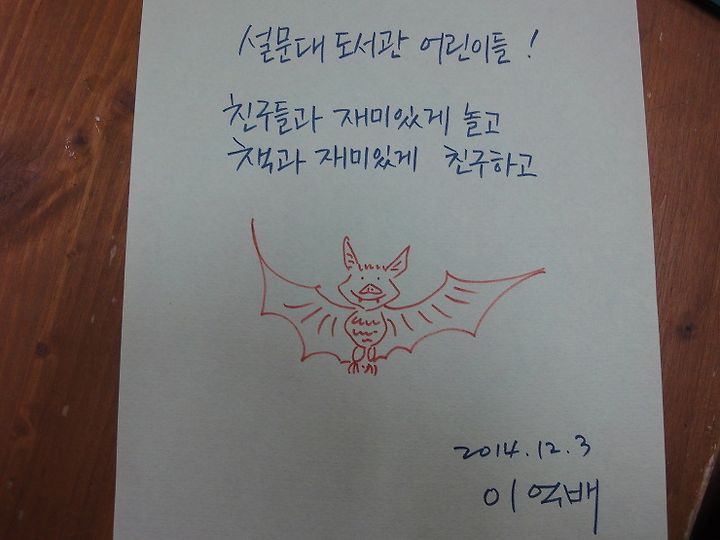 설문대 도서관 어린이들!
친구들과 재미있게 놀고
책과 재미있게 친구하고
2014.12.3
이억배